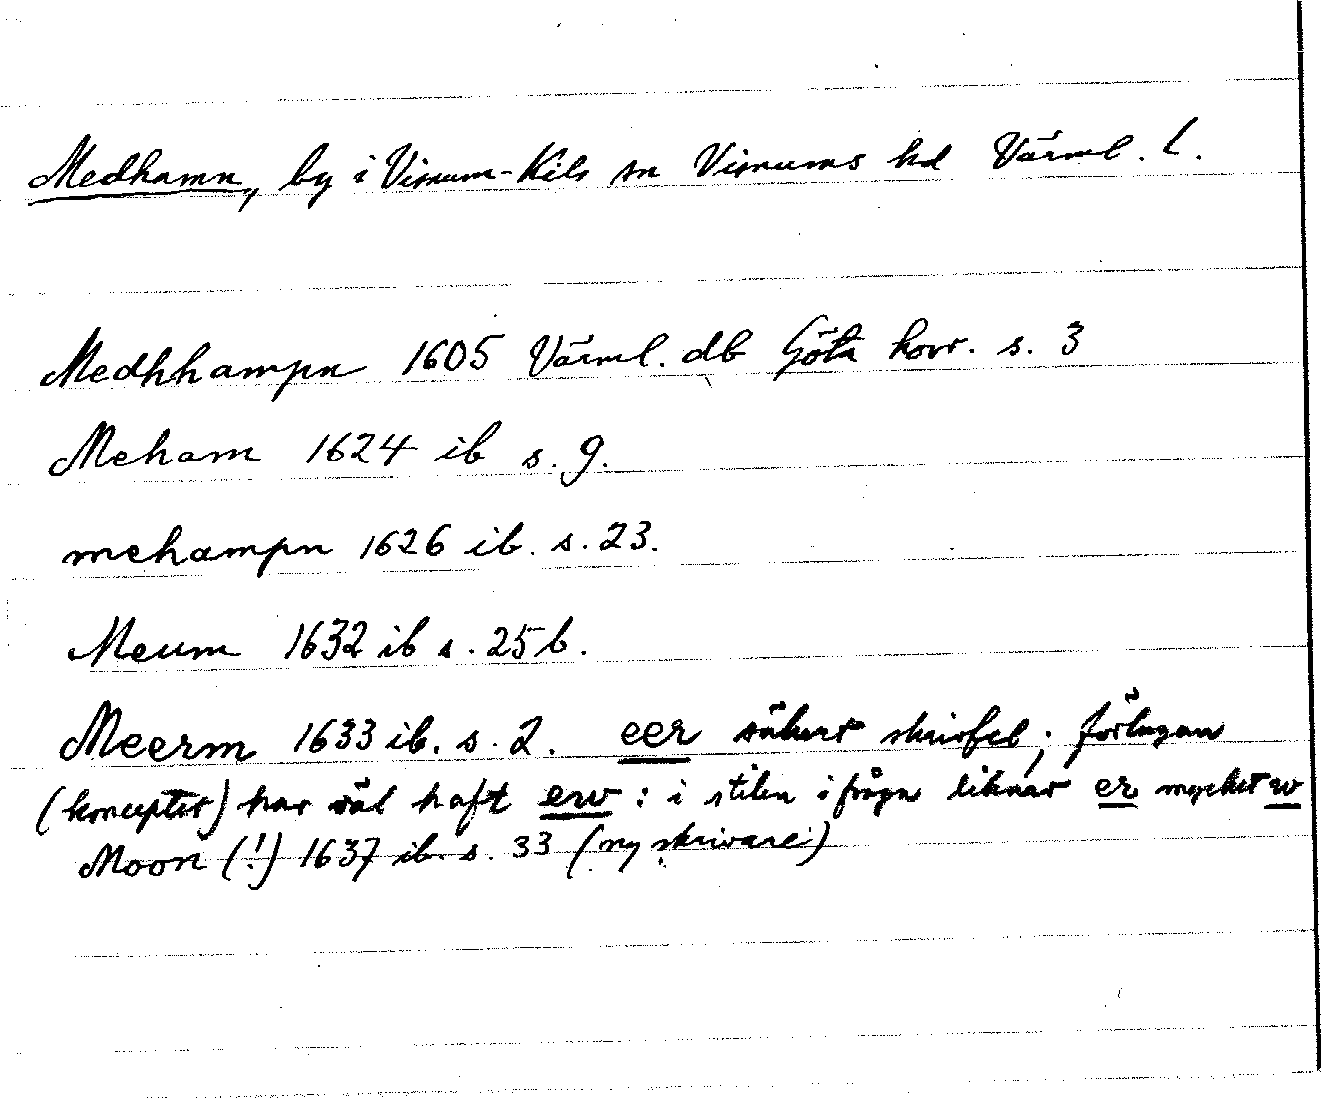 Medhamn, by i Visnum-Kils sn Visnums hd Värml. l.
Medhhampn 1605 Värml. db Göta hovr. s. 3
Meham 1624 ib s. 9.
mehampn 1626 ib. s. 23.
Meum 1632 ib s. 25 b.
Meerm 1633 ib. s. 2. eer säkert skrivfel; förlagan
(konceptet) har väl haft erw: i stilen i fråga liknar er mycket w
Moon (!) 1637 ib. s. 33 (ny skrivare)